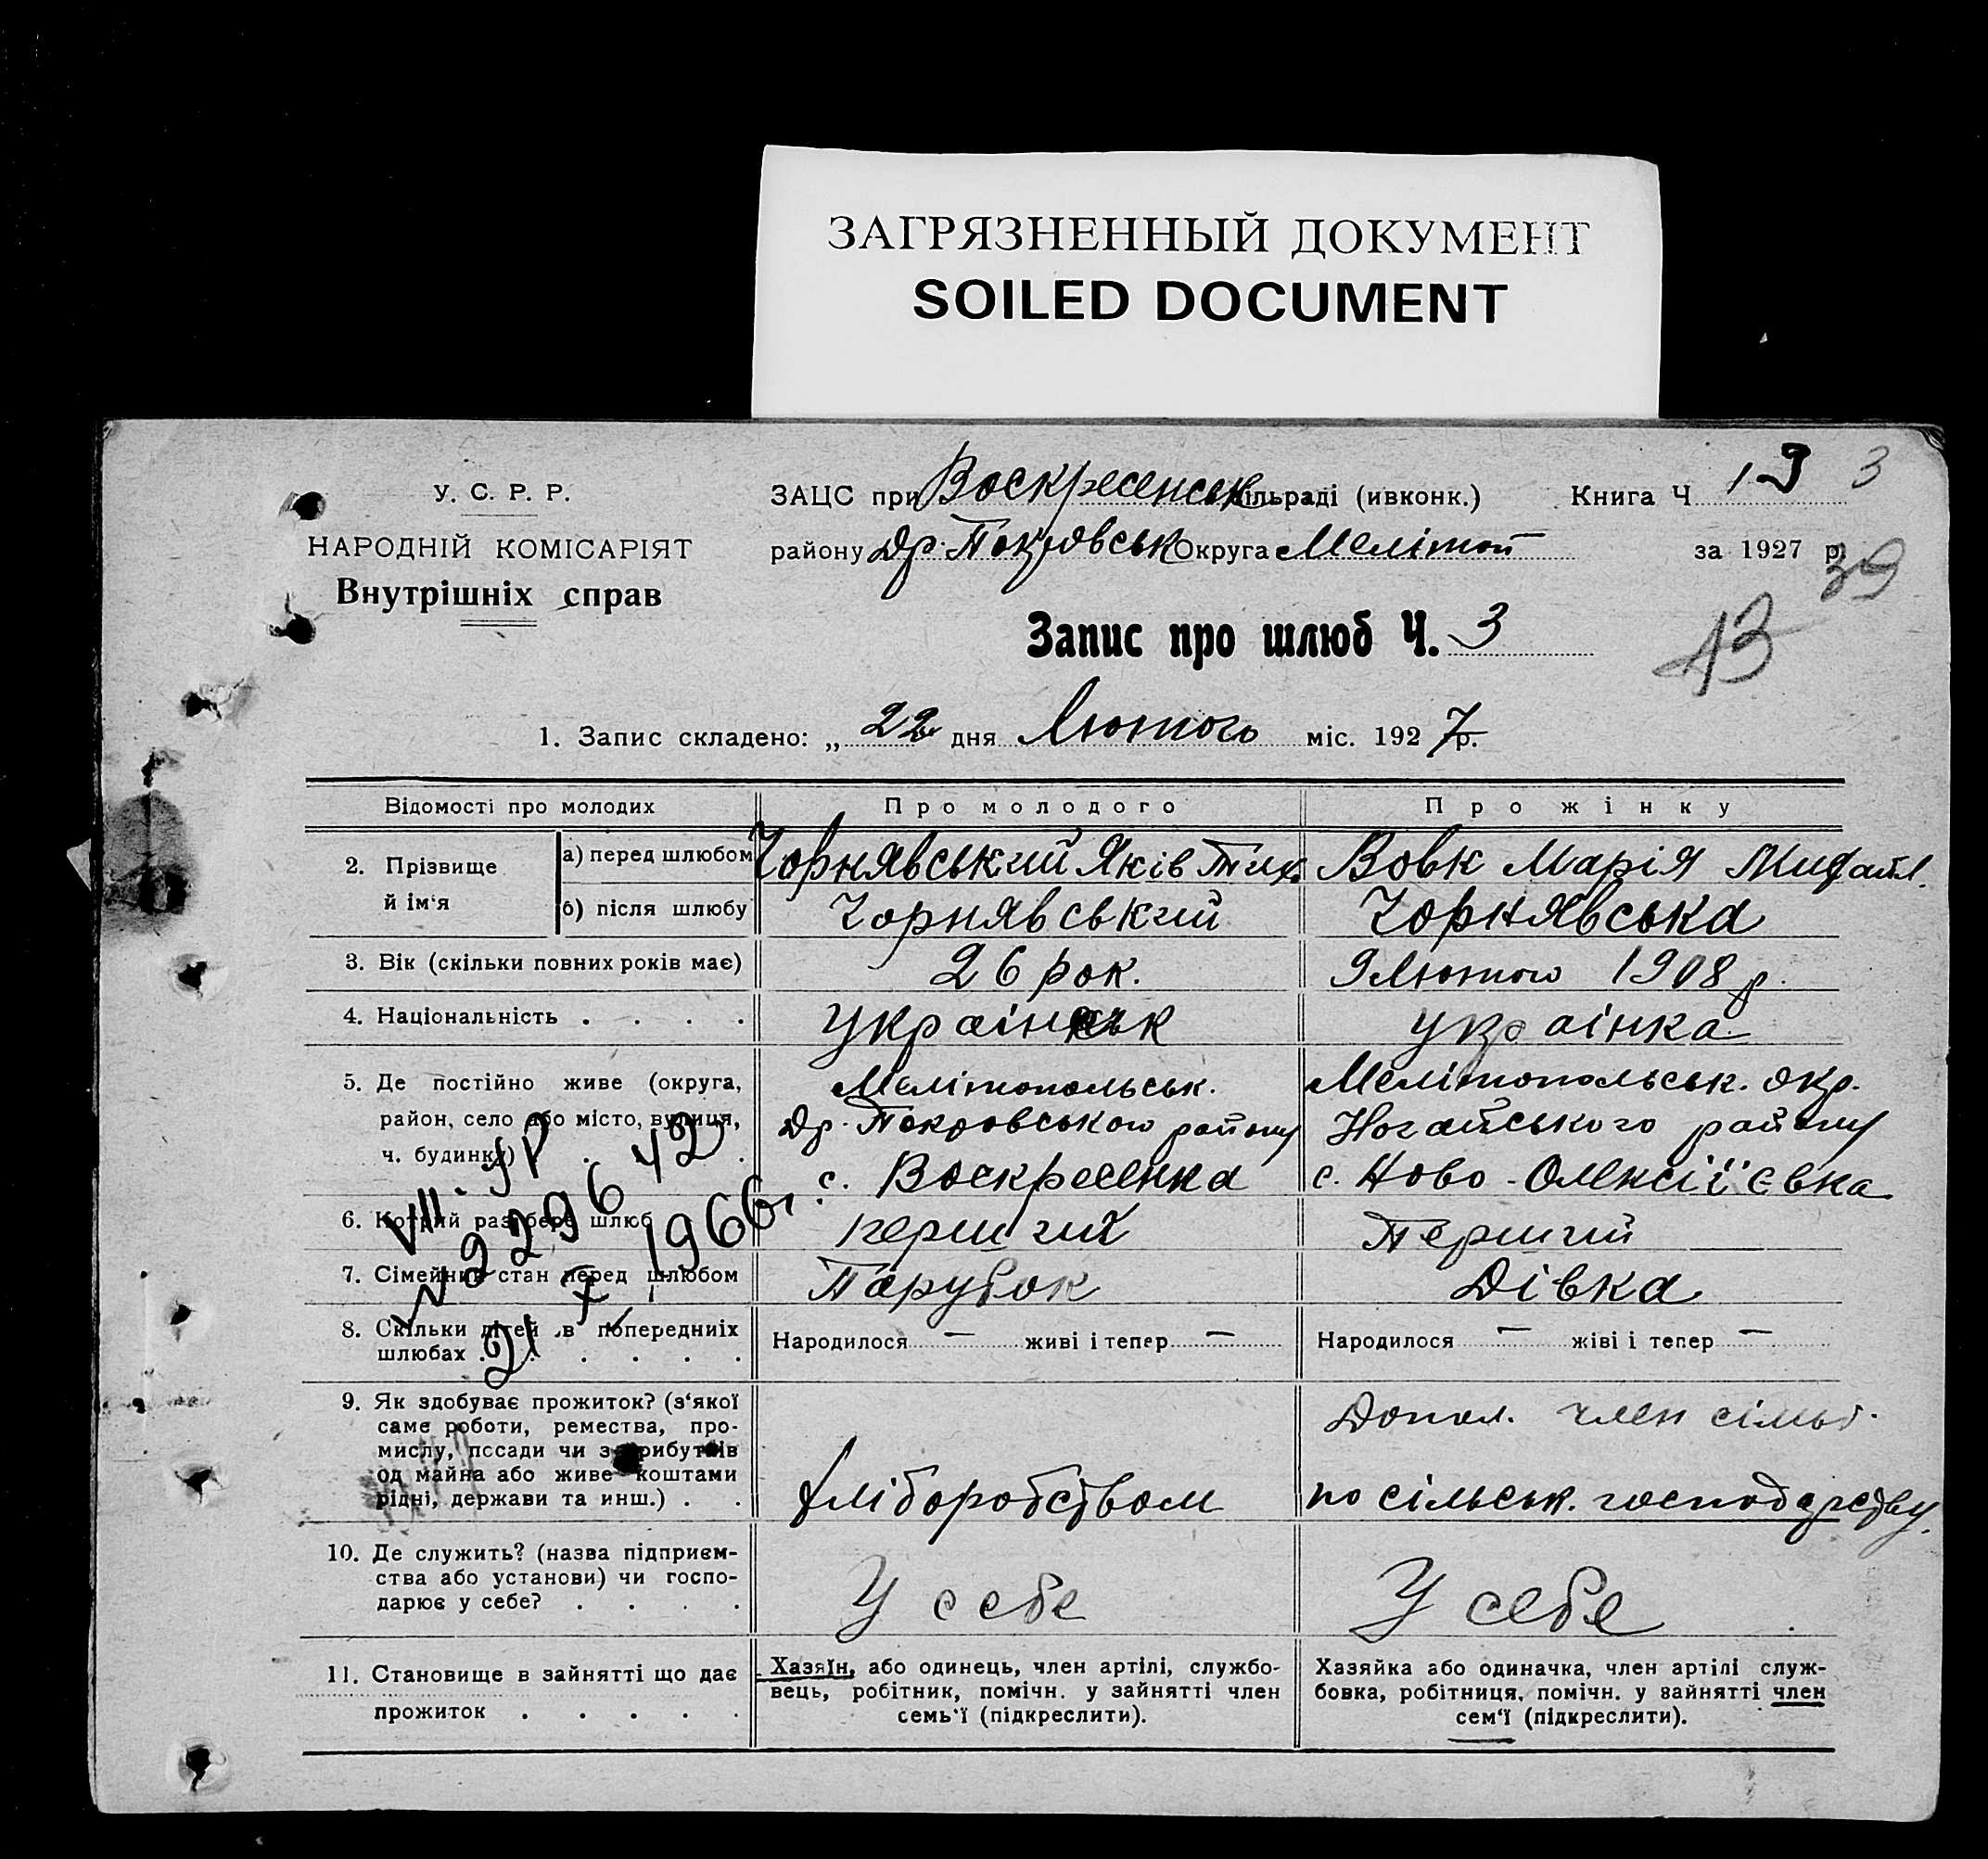 ЗАГРЯЗНЕННЫЙ ДОКУМЕНТ
SOILED DOCUMENT
У. С. Р. Р.
НАРОДНІЙ КОМІСАРІЯТ
Внутрішніх справ
ЗАЦС при Воскресенськ сільраді (ивконк.) Книга Ч 13 3
району Др. Покровськ Округа Меліт за 1927 р.
39
Запис про шлюб Ч. 3
13
1. Запис складено: „ 22 дня Лютого міс. 1927 р.
Відомості про молодих Про молодого Про жінку
2. Прізвище й ім'я
а) перед шлюбом Чорнявський Яків Тих. Вовк Марія Михайл.
б) після шлюбу Чорнявський Чорнявська
3. Вік (скільки повних років має) 26 рок. 9 Лютого 1908 р.
4. Національність . . . . україньськ українка
5. Де постійно живе (округа, Мелітопольськ. Мелітопольськ. окр.
район, село або місто, вулиця, Др. Покровського району Ногайського району
ч. будинку) с. Воскресенка с. Ново-Олексіївка
6. Котрий раз бере шлюб перший Перший
7. Сімейний стан перед шлюбом Парубок Дівка
8. Скільки дітей в попередниіх Народилося — живі і тепер — Народилося — жіві і тепер —
шлюбах . . . . .
VII. ЯР
№ 229642
21 7 1966г.
9. Як здобуває прожиток? (з'якої
саме роботи, ремества, про-
мислу, посади чи з прибутків
од майна або живе коштами
рідні, держави та инш.) . .
хліборобством
Допом. член сімьї
по сільськ. господарству.
10. Де служить? (назва підприєм-
ства або установи) чи госпо-
дарює у себе? . . . .
У себе У себе
11. Становище в зайнятті що дає
прожиток . . . . .
Хазяїн, або одинець, член артілі, службо-
вець, робітник, помічн. у зайнятті член
семь'ї (підкреслити).
Хазяйка або одиначка, член артілі служ-
бовка, робітниця, помічн. у зайнятті член
сем'ї (підкреслити).